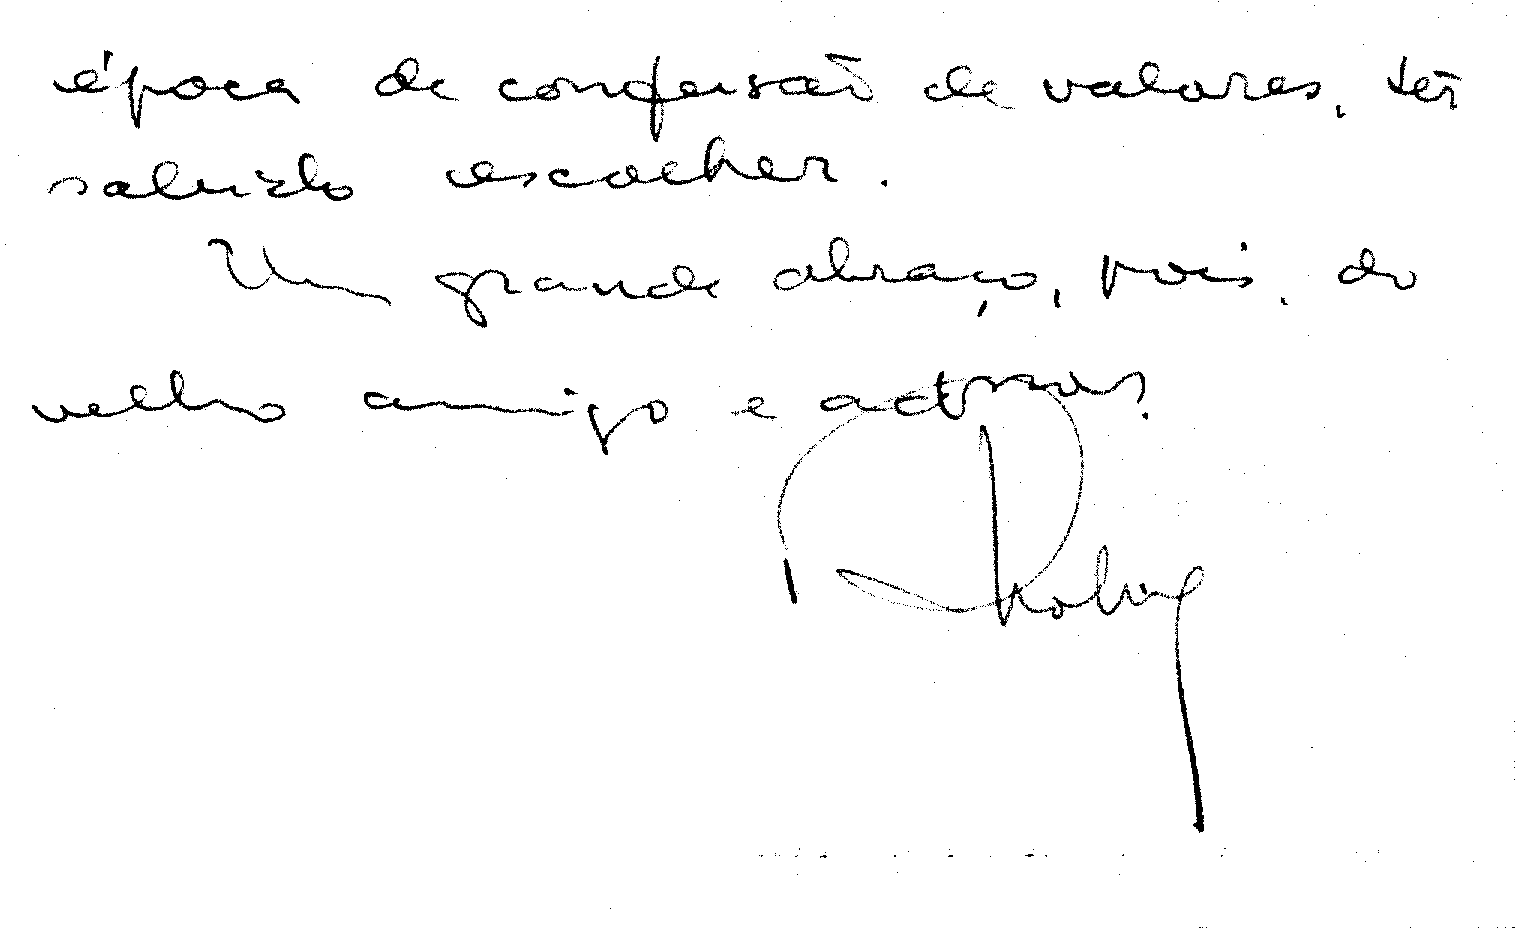 época de confusão de valores, ter
sabido escolher.
Um grande abraço, pois, do
velho amigo e admor.